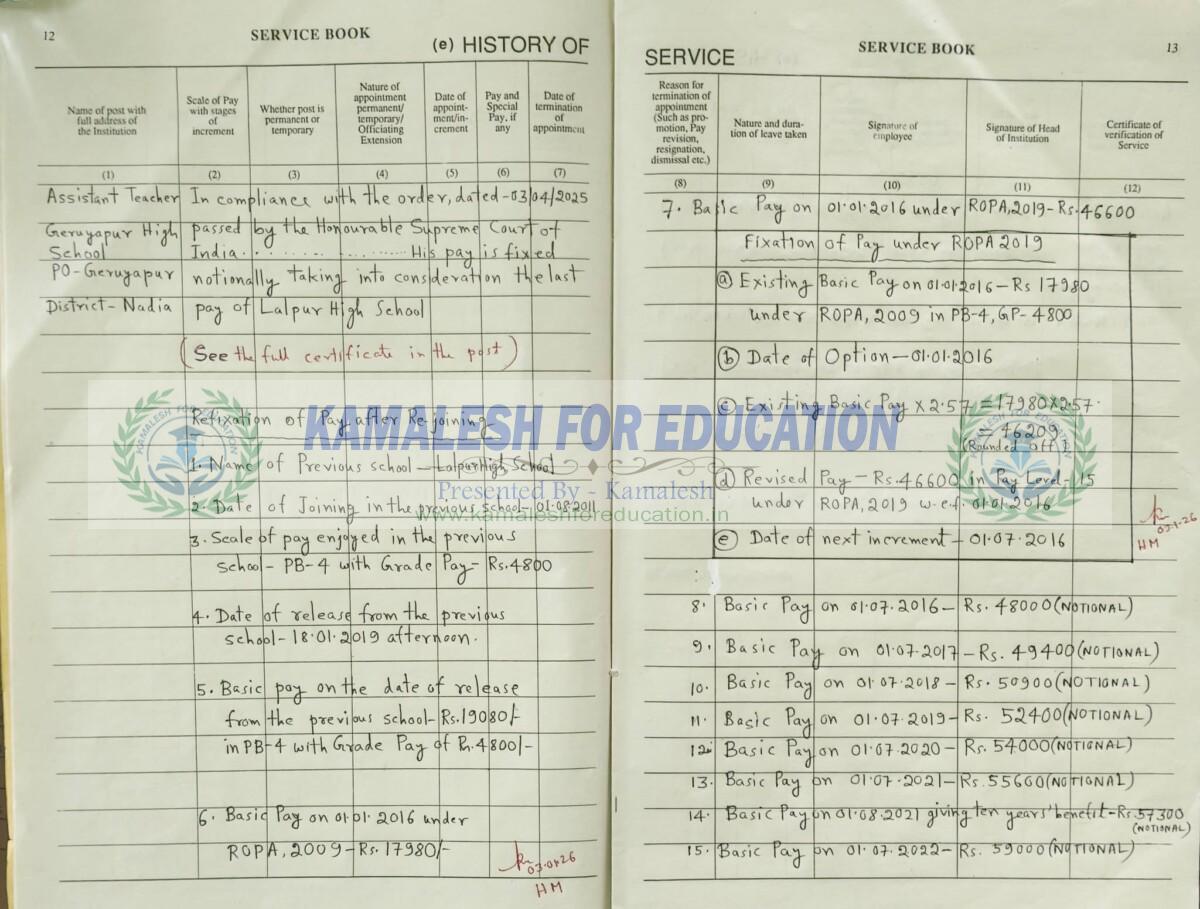 12
SERVICE BOOK
(e) HISTORY OF
Name of post with full address of the Institution
Scale of Pay with stages of increment
Whether post is permanent or temporary
Nature of appointment permanent/ temporary/ Officiating Extension
Date of appoint-ment/in-crement
Pay and Special Pay, if any
Date of termination of appointment
(1) (2) (3) (4) (5) (6) (7)
Assistant Teacher
Geruyapur High
School
PO-Geruyapur
District- Nadia
In compliance with the order, dated-03/04/2025
passed by the Honourable Supreme Court of
India.................... His pay is fixed
notionally taking into consideration the last
pay of Lalpur High School
(See the full certificate in the post)
Refixation of Pay after Re-joining
1. Name of Previous school - Lalpur High School
2. Date of Joining in the previous School- 01.08.2011
3. Scale of pay enjoyed in the previous
school- PB-4 with Grade Pay- Rs.4800
4. Date of release from the previous
school-18.01.2019 afternoon.
5. Basic pay on the date of release
from the previous school- Rs.19080/-
in PB-4 with Grade Pay of Rs.4800/-
6. Basic Pay on 01.01.2016 under
ROPA, 2009-Rs.17980/-
HM
13
SERVICE BOOK
SERVICE
Reason for termination of appointment (Such as pro-motion, Pay revision, resignation, dismissal etc.)
Nature and dura-tion of leave taken
Signature of employee
Signature of Head of Institution
Certificate of verification of Service
(8) (9) (10) (11) (12)
7. Basic Pay on 01.01.2016 under ROPA, 2019-Rs.46600
Fixation of Pay under ROPA 2019
(a) Existing Basic Pay on 01.01.2016-Rs 17980
under ROPA, 2009 in PB-4, GP-4800
(b) Date of Option-01.01.2016
(c) Existing Basic Pay × 2.57 = 17980×2.57
= 46209
(Rounded off)
(d) Revised Pay - Rs.46600 in Pay Level-15
under ROPA, 2019 w.e.f. 01.01.2016
(e) Date of next increment - 01.07.2016
HM
8. Basic Pay on 01.07.2016- Rs. 48000 (NOTIONAL)
9. Basic Pay on 01.07.2017-Rs. 49400 (NOTIONAL)
10. Basic Pay on 01.07.2018- Rs. 50900 (NOTIONAL)
11. Basic Pay on 01.07.2019- Rs. 52400 (NOTIONAL)
12. Basic Pay on 01.07.2020- Rs. 54000 (NOTIONAL)
13. Basic Pay on 01.07.2021- Rs.55600 (NOTIONAL)
14. Basic Pay on 01.08.2021 giving ten years' benefit-Rs.57300
(NOTIONAL)
15. Basic Pay on 01.07.2022- Rs. 59000 (NOTIONAL)
KAMALESH FOR EDUCATION
Presented By - Kamalesh
www.kamaleshforeducation.in
KAMALESH FOR EDUCATION
KAMALESH FOR EDUCATION